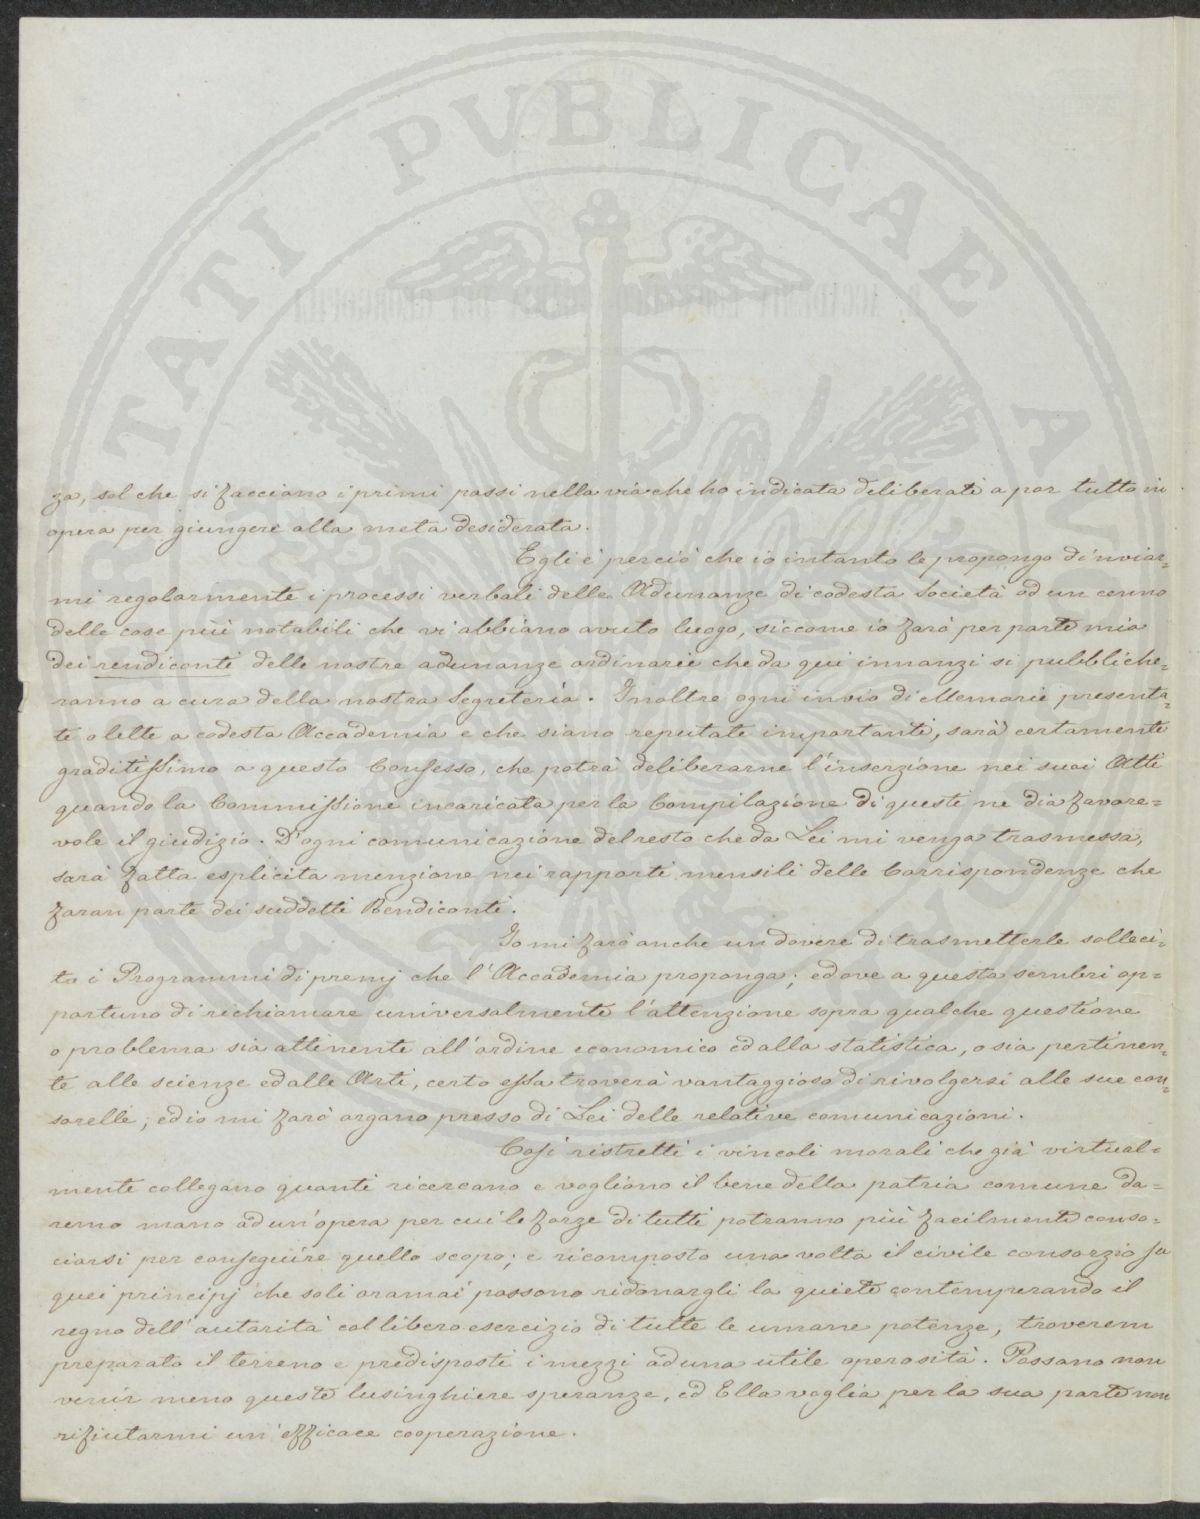 PROSPERITATI PUBLICAE AUGENDAE
R. ACCADEMIA ECONOMICO-AGRARIA DEI GEORGOFILI
za, sol che si facciano i primi passi nella via che ho indicata deliberati a por tutto in
opera per giungere alla meta desiderata.
Egli è perciò che io intanto le propongo d'inviar=
mi regolarmente i processi verbali delle Adunanze di codesta Società od un cenno
delle cose più notabili che vi abbiano avuto luogo, siccome io farò per parte mia
dei rendiconti delle nostre adunanze ordinarie che da qui innanzi si pubbliche=
ranno a cura della nostra Segreteria. Inoltre ogni invio di Memorie presenta=
te o lette a codesta Accademia e che siano reputate importanti, sarà certamente
graditissimo a questo Consesso, che potrà deliberarne l'inserzione nei suoi Atti
quando la Commissione incaricata per la Compilazione di questi ne dia favore=
vole il giudizio. D'ogni comunicazione del resto che da Lei mi venga trasmessa,
sarà fatta esplicita menzione nei rapporti mensili delle Corrispondenze che
faran parte dei suddetti Rendiconti.
Io mi farò anche un dovere di trasmetterle solleci=
to i Programmi di premj che l'Accademia proponga; ed ove a questa sembri op=
portuno di richiamare universalmente l'attenzione sopra qualche questione
o problema sia attinente all'ordine economico ed alla statistica, o sia pertinen=
te alle scienze ed alle Arti, certo essa troverà vantaggioso di rivolgersi alle sue con=
sorelle; ed io mi farò organo presso di Lei delle relative comunicazioni.
Così ristretti i vincoli morali che già virtual=
mente collegano quanti ricercano e vogliono il bene della patria comune da=
remo mano ad un'opera per cui le forze di tutti potranno più facilmente conso=
ciarsi per conseguire quello scopo; e ricomposto una volta il civile consorzio su
quei principj che soli oramai possono ridonargli la quiete contemperando il
regno dell'autorità col libero esercizio di tutte le umane potenze, troverem
preparato il terreno e predisposti i mezzi ad una utile operosità. Possano non
venir meno queste lusinghiere speranze, ed Ella voglia per la sua parte non
rifiutarmi un'efficace cooperazione.